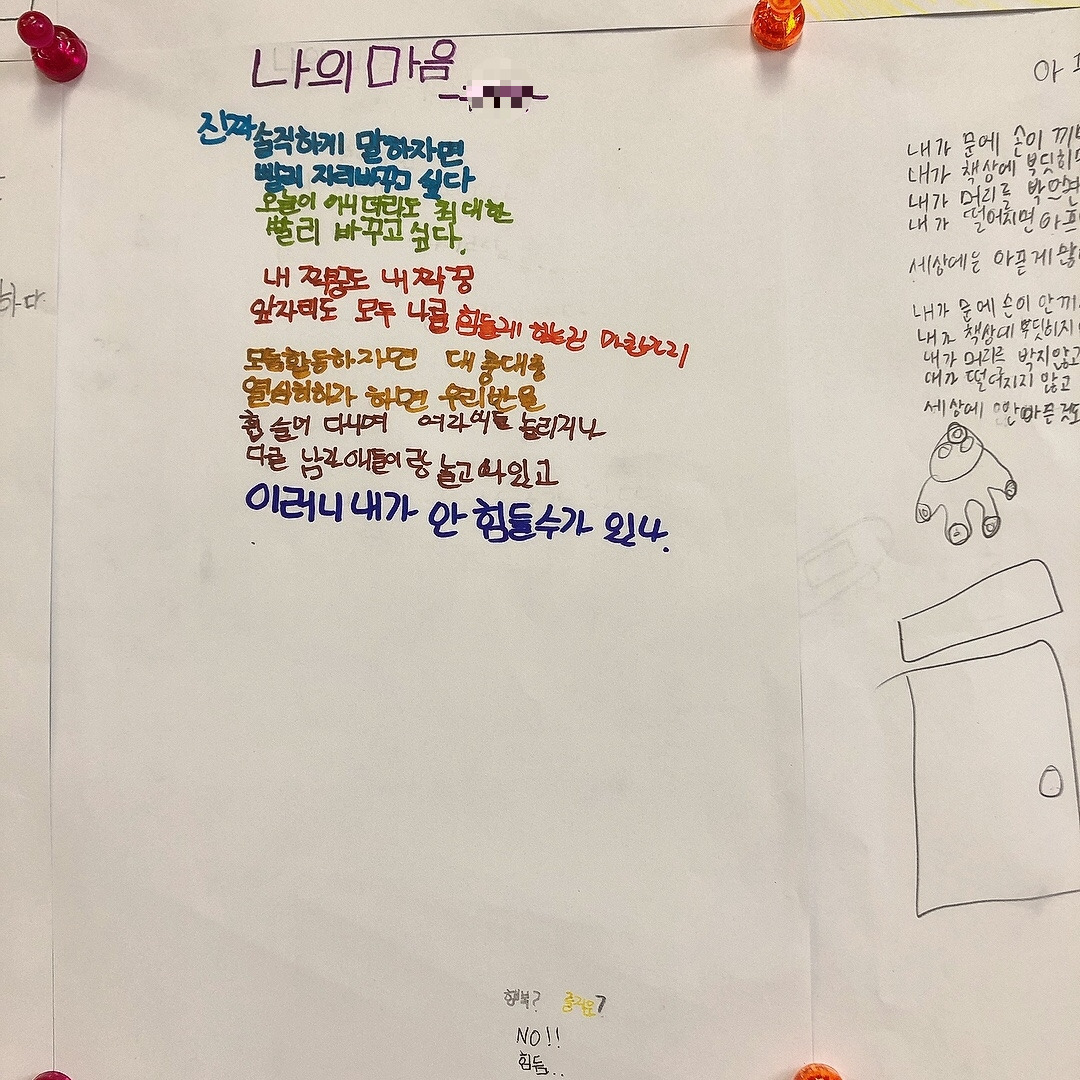 나의 마음
진짜 솔직하게 말하자면
빨리 자리바꾸고 싶다
오늘이 아니더라도 최대한
빨리 바꾸고 싶다.
내 짝꿍도 내 짝꿍
앞자리도 모두 나를 힘들게 하는건 마찬가지
모둠활동하자면 대충대충
열심히하가 하면 우리반을
휩쓸며 다니며 여자애들 놀리거나
다른 남자애들이랑 놀고 와있고
이러니 내가 안 힘들수가 있나.
행복? 즐거움?
NO!!
힘듦..
하다
아프
내가 문에 손이 끼
내가 책상에 부딪히면
내가 머리를 박으면
내가 떨어지면 아프
세상에는 아픈게 많
내가 문에 손이 안 끼
내가 책상에 부딪히지
내가 머리를 박지않고
내가 떨어지지 않고
세상에 안아픈 것도